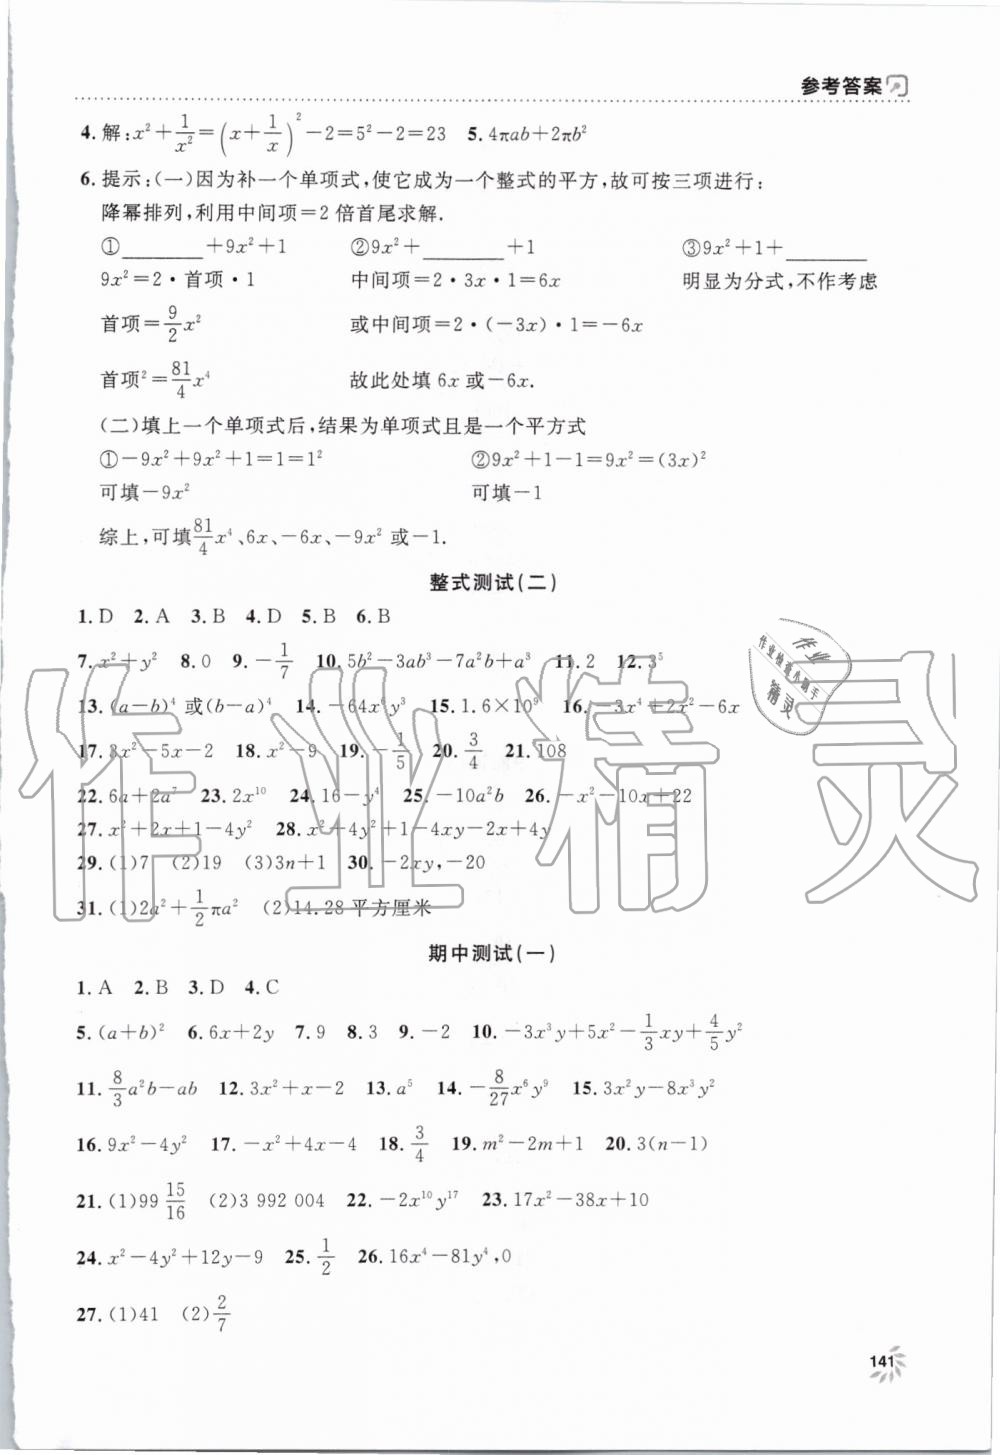 参考答案
4. 解:x²+1/x²=(x+1/x)²-2=5²-2=23 5. 4πab+2πb²
6. 提示:(一)因为补一个单项式,使它成为一个整式的平方,故可按三项进行:
降幂排列,利用中间项=2倍首尾求解.
①______+9x²+1 ②9x²+______+1 ③9x²+1+______
9x²=2·首项·1 中间项=2·3x·1=6x 明显为分式,不作考虑
首项=9/2x² 或中间项=2·(-3x)·1=-6x
首项²=81/4x⁴ 故此处填6x或-6x.
(二)填上一个单项式后,结果为单项式且是一个平方式
①-9x²+9x²+1=1=1² ②9x²+1-1=9x²=(3x)²
可填-9x² 可填-1
综上,可填81/4x⁴、6x、-6x、-9x²或-1.
整式测试(二)
1. D 2. A 3. B 4. D 5. B 6. B
7. x²+y² 8. 0 9. -1/7 10. 5b²-3ab³-7a²b+a³ 11. 2 12. 3⁵
13. (a-b)⁴或(b-a)⁴ 14. -64x⁶y³ 15. 1.6×10⁹ 16. -3x⁴+2x²-6x
17. 3x²-5x-2 18. x²-9 19. -1/5 20. 3/4 21. 108
22. 6a+2a⁷ 23. 2x¹⁰ 24. 16-y⁴ 25. -10a²b 26. -x²-10x+22
27. x²+2x+1-4y² 28. x²+4y²+1-4xy-2x+4y
29. (1)7 (2)19 (3)3n+1 30. -2xy,-20
31. (1)2a²+1/2πa² (2)14.28平方厘米
期中测试(一)
1. A 2. B 3. D 4. C
5. (a+b)² 6. 6x+2y 7. 9 8. 3 9. -2 10. -3x³y+5x²-1/3xy+4/5y²
11. 8/3a²b-ab 12. 3x²+x-2 13. a⁵ 14. -8/27x⁶y⁹ 15. 3x²y-8x³y²
16. 9x²-4y² 17. -x²+4x-4 18. 3/4 19. m²-2m+1 20. 3(n-1)
21. (1)99 15/16 (2)3 992 004 22. -2x¹⁰y¹⁷ 23. 17x²-38x+10
24. x²-4y²+12y-9 25. 1/2 26. 16x⁴-81y⁴,0
27. (1)41 (2)2/7
141
作业精灵
作业
作业检查小助手
精灵